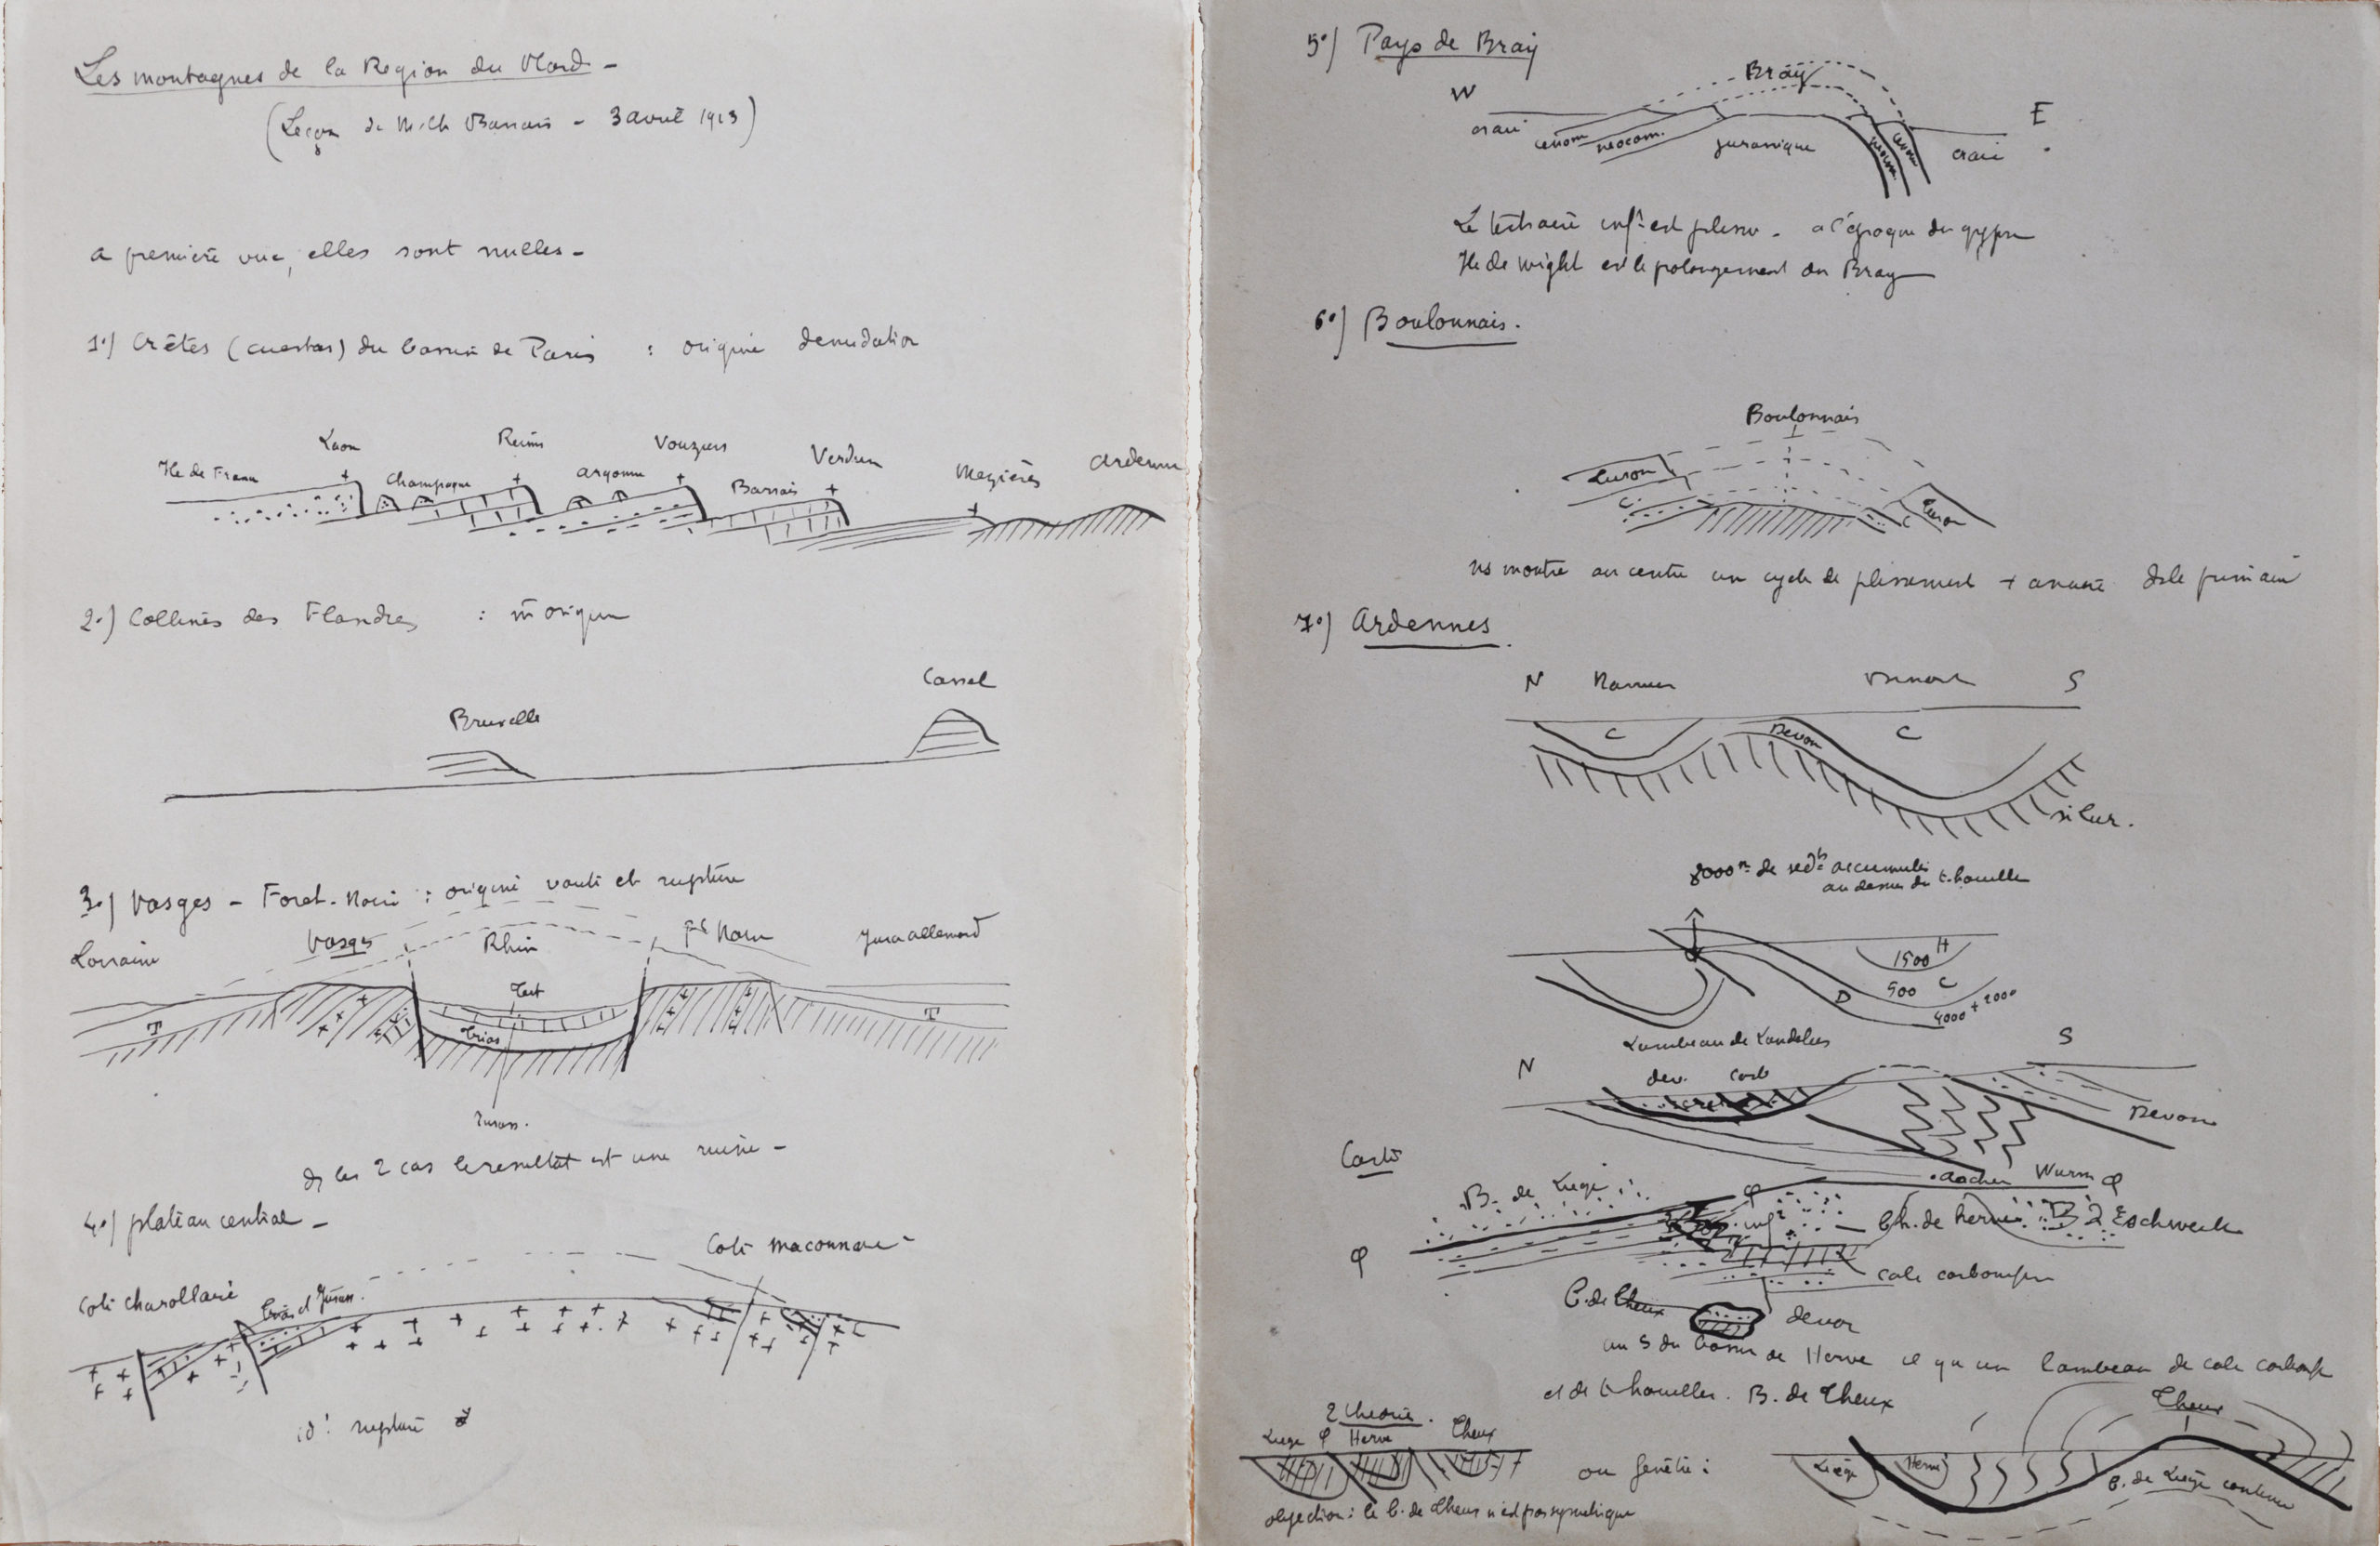 Les montagnes de la Region du Nord -
(Leçon de Mr Ch Barrois - 3 avril 1913)
a première vue, elles sont nulles -
1°) Crêtes (cuestas) du bassin de Paris : origine denudation
Laon Reims Vouziers Verdun Mezières Ardenne
Ile de France Champagne argonne Barrois
2°) Collines des Flandres : m̄ origine
Cassel
Bruxelle
3°) Vosges - Foret-Noire : origine voute et rupture
Lorraine Vosges Rhin Ft Noire Jura allemand
Tert
T Trias T
Jurass.
ds les 2 cas le resultat est une ruine -
4°) plateau central -
Cote maconnaise
Cote charollaise Trias et Jurass.
id : rupture
5°) Pays de Bray
Bray
W E
craie cenom neocom. jurassique neocom. cenom craie
Le tertiaire infr est plissé - a l'époque du gypse
Ile de Wight est le polongement du Bray
6°) Boulonnais.
Boulonnais
Turon Turon
C C
ns montre au centre un cycle de plissement + ancien ds le primaire
7°) Ardennes
N Namur Dinant S
C Devon C
silur.
8000m de sedts accumulés
au dessus du t. houiller
1500 H
500 C
D 4000 + 2000
Lambeau de Landelies
N dev. Carb S
Devon
Carte
B. de Liège Aachen Wurm φ
φ infr Ch. de Herve B d Eschweiler
φ calc carbonifer
B. de Theux devon
au S du bassin de Herve il y a un lambeau de calc carbonif
et de t. houiller. B. de Theux
2 theorie. Theux
Liege φ Herve Theux
ou fenêtre : Liège Herve B. de Liège continu
objection : le b. de Theux n'est pas symetrique